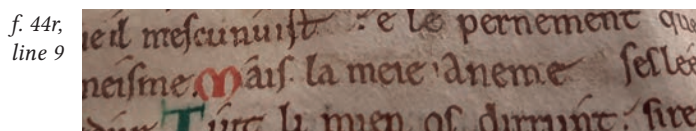 f. 44r,
line 9
ueil mescunuist : e le pernement qu
neisme. Mais la meie aneme sesleec
Tuit li mien os dirrunt: sire